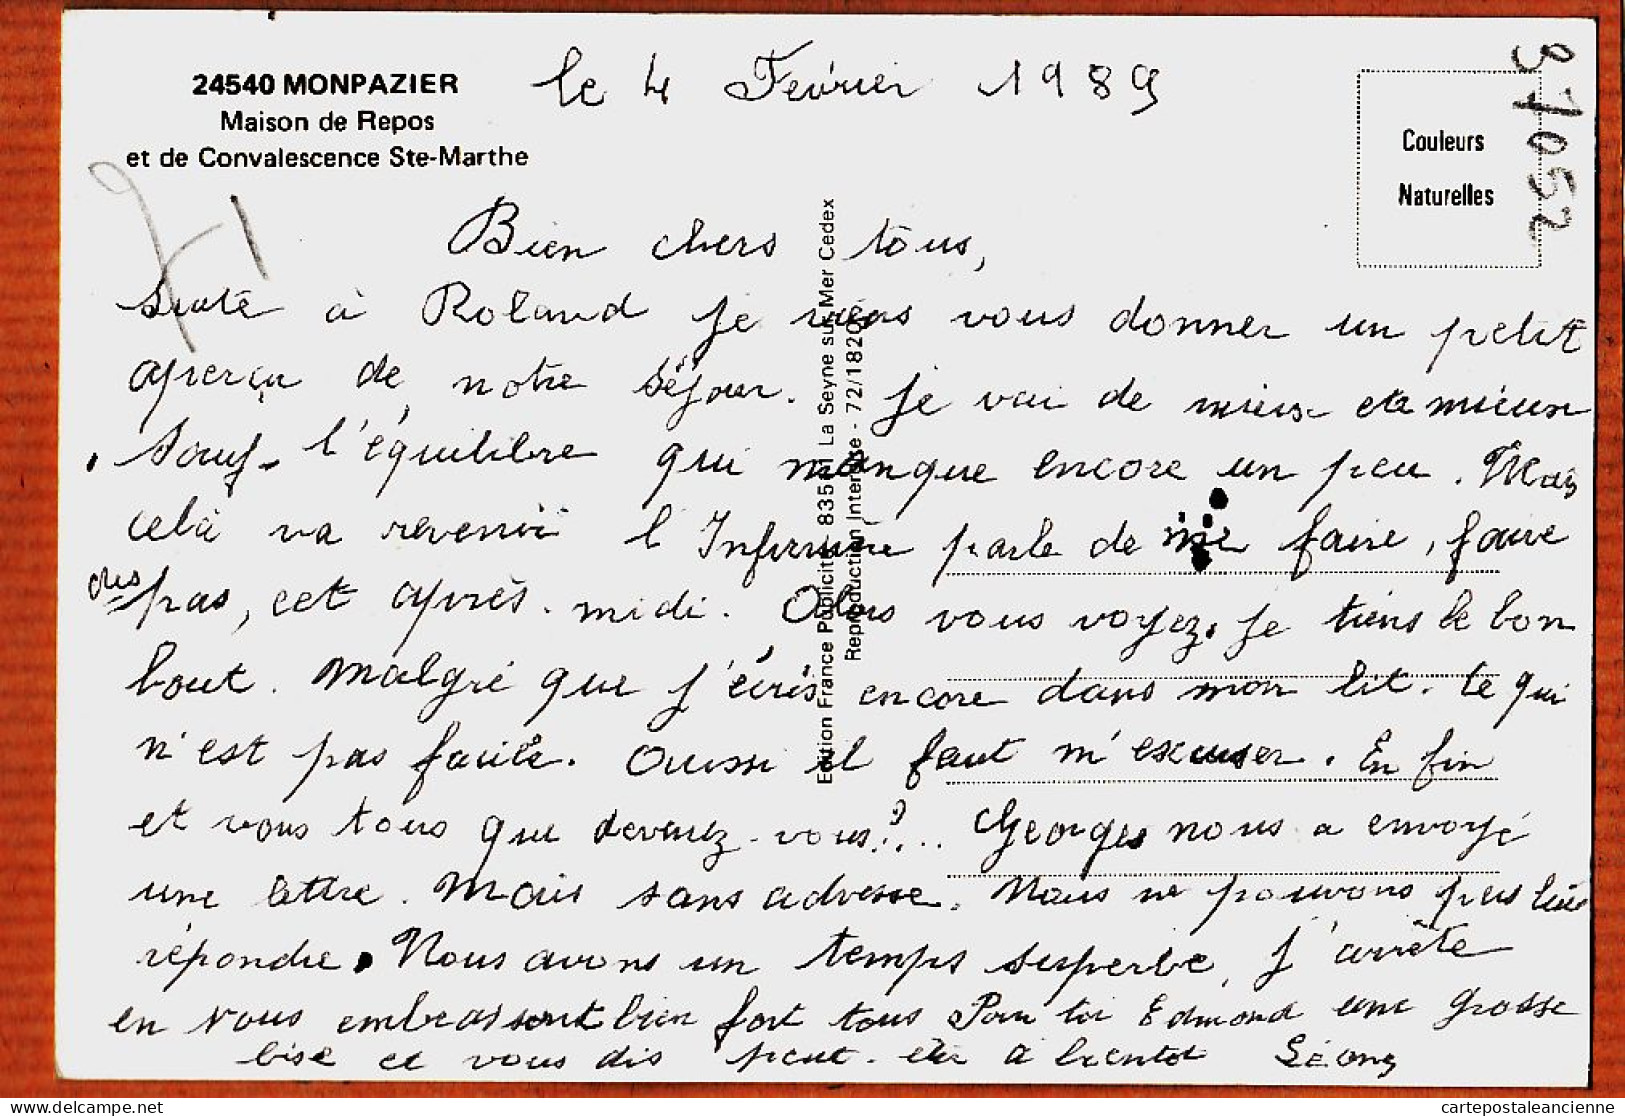 24540 MONPAZIER
Maison de Repos
et de Convalescence Ste-Marthe
le 4 Février 1989
Couleurs
Naturelles
37052
71
Bien chers tous,
Suite à Roland je viens vous donner un petit
aperçu de notre séjour. Je vai de mieux et a mieux
sauf l'équilibre qui manque encore un peu. Mais
celà va revenir l'Infirmière parle de me faire, faire
des pas, cet après-midi. Alors vous voyez, je tiens le bon
bout. Malgré que j'écris encore dans mon lit. Ce qui
n'est pas facile. Aussi il faut m'excuser. En fin
et vous tous que devenez-vous?... Georges nous a envoyé
une lettre. Mais sans adresse. Nous ne pouvons pas lui
répondre. Nous avons un temps superbe, j'arrête
en vous embrassant bien fort tous Pour toi Edmond une grosse
bise et vous dis peut-être à bientot
Edition France Publicité 83501 La Seyne sur Mer Cedex
Reproduction Interdite - 72/18209
cartepostaleancienne.com
cartepostaleancienne